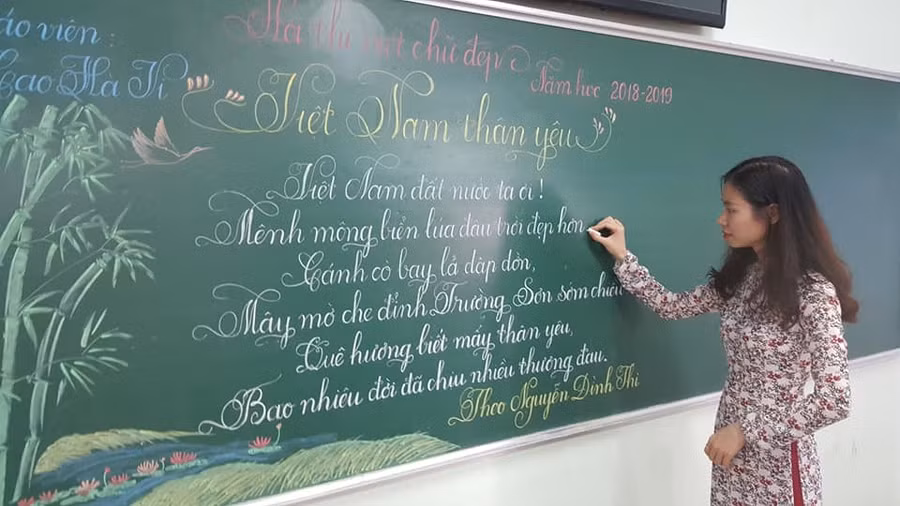 Hội thi viết chữ đẹp
Năm học 2018-2019
áo viên :
Cao Hà Vi
Việt Nam thân yêu
Việt Nam đất nước ta ơi !
Mênh mông biển lúa đâu trời đẹp hơn
Cánh cò bay lả dập dờn,
Mây mờ che đỉnh Trường Sơn sớm chiều
Quê hương biết mấy thân yêu,
Bao nhiêu đời đã chịu nhiều thương đau.
Theo Nguyễn Đình Thi